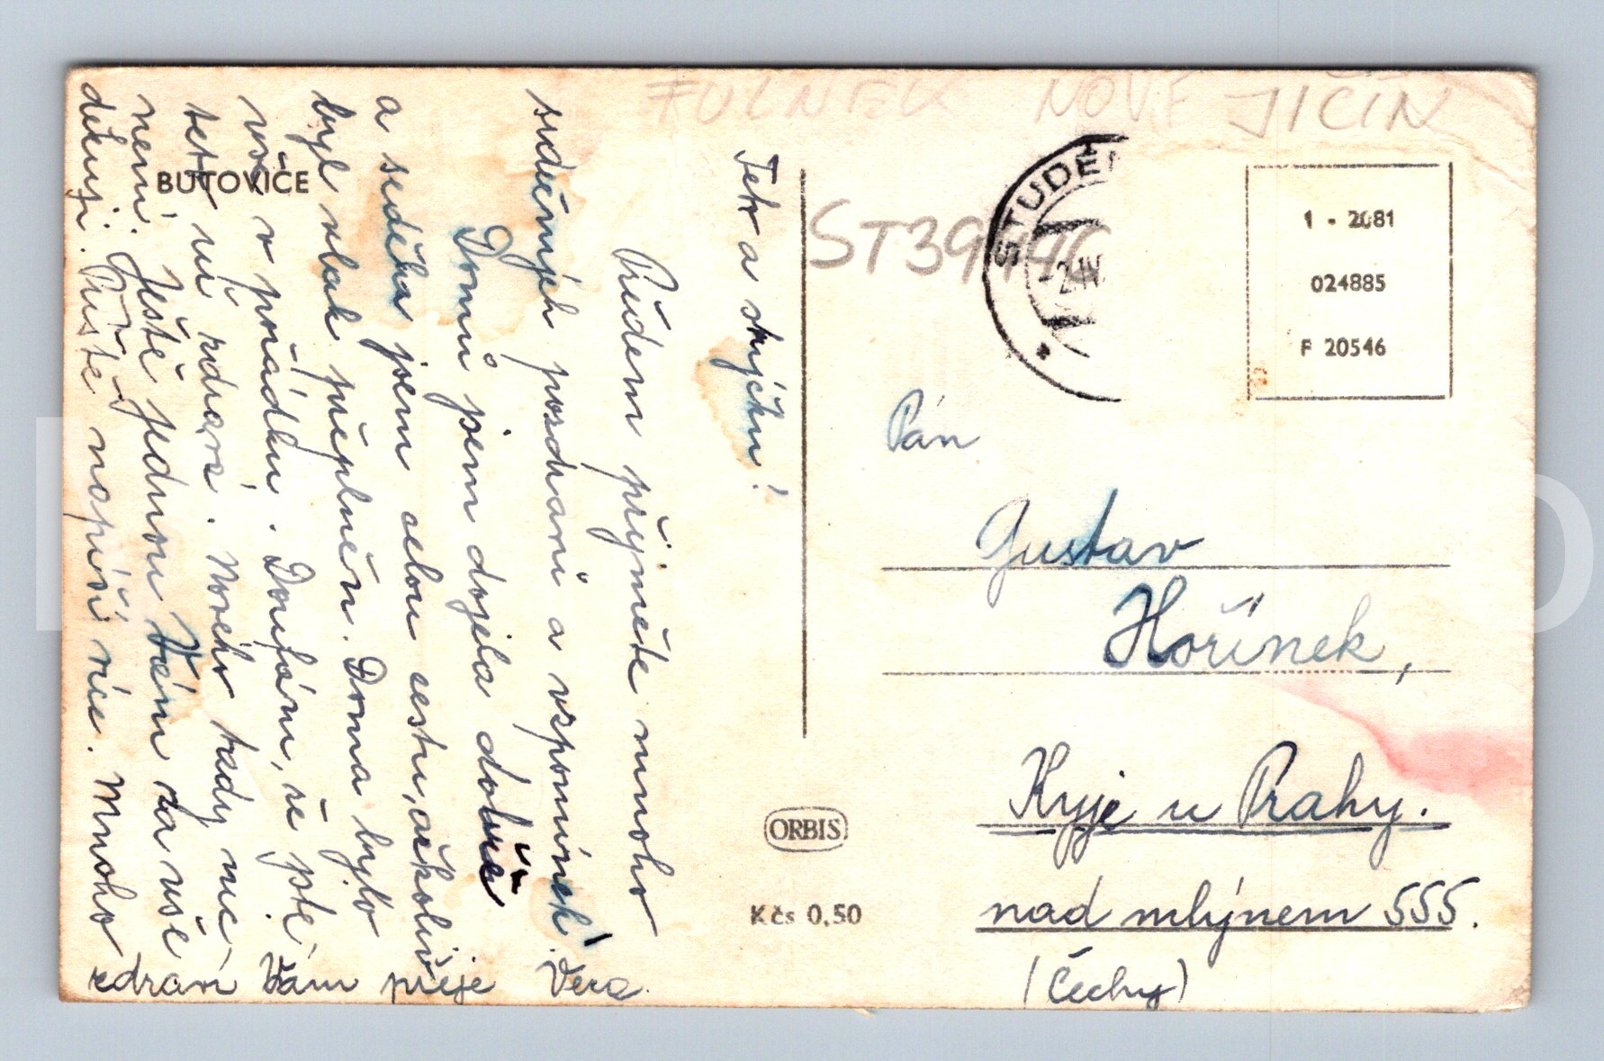 FULNEK NOVÝ JIČÍN
ST39446
STUDÉN
-2.IV.
1 - 2081
024885
F 20546
BUTOVICE
Teto a strýčku!
Předem přijměte mnoho
srdečných pozdravů a vzpomínek.
Domů jsem dojela dobře
a seděla jsem celou cestu, ačkoliv
byl vlak přeplněn. Doma bylo
vše v pořádku. Doufám, že jste
teto už zdravá. Nového tady nic
není. Ještě jednou Vám za vše
děkuji. Příště napíši více. Mnoho
zdraví Vám přeje Věra.
Pán
Gustav
Hořínek,
Kyje u Prahy.
nad mlýnem 555.
(Čechy)
ORBIS
Kčs 0,50